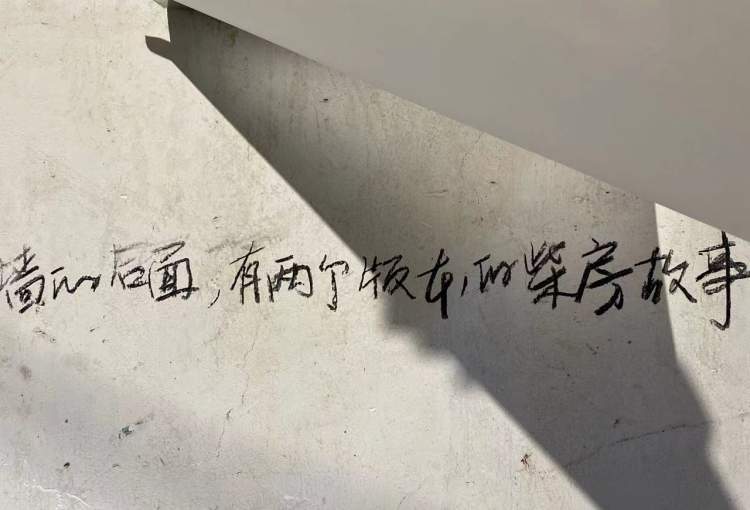 墙的后面,有两个版本的柴房故事